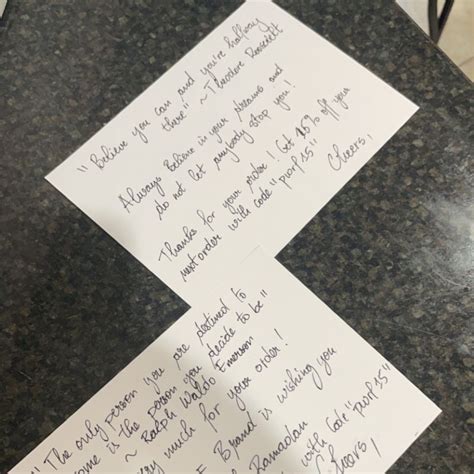 "Believe you can and you're halfway
there" ~ Theodore Roosevelt
Always Believe in your dreams and
do not let anybody stop you!
Thanks for your order! Get 15% off your
next order with code "pwrf15"
Cheers,
"The only person you are destined to
ome is the person you decide to be"
~ Ralph Waldo Emerson
very much for your order!
Brand is wishing you
Ramadan
with Code "pwrf15"
heers,